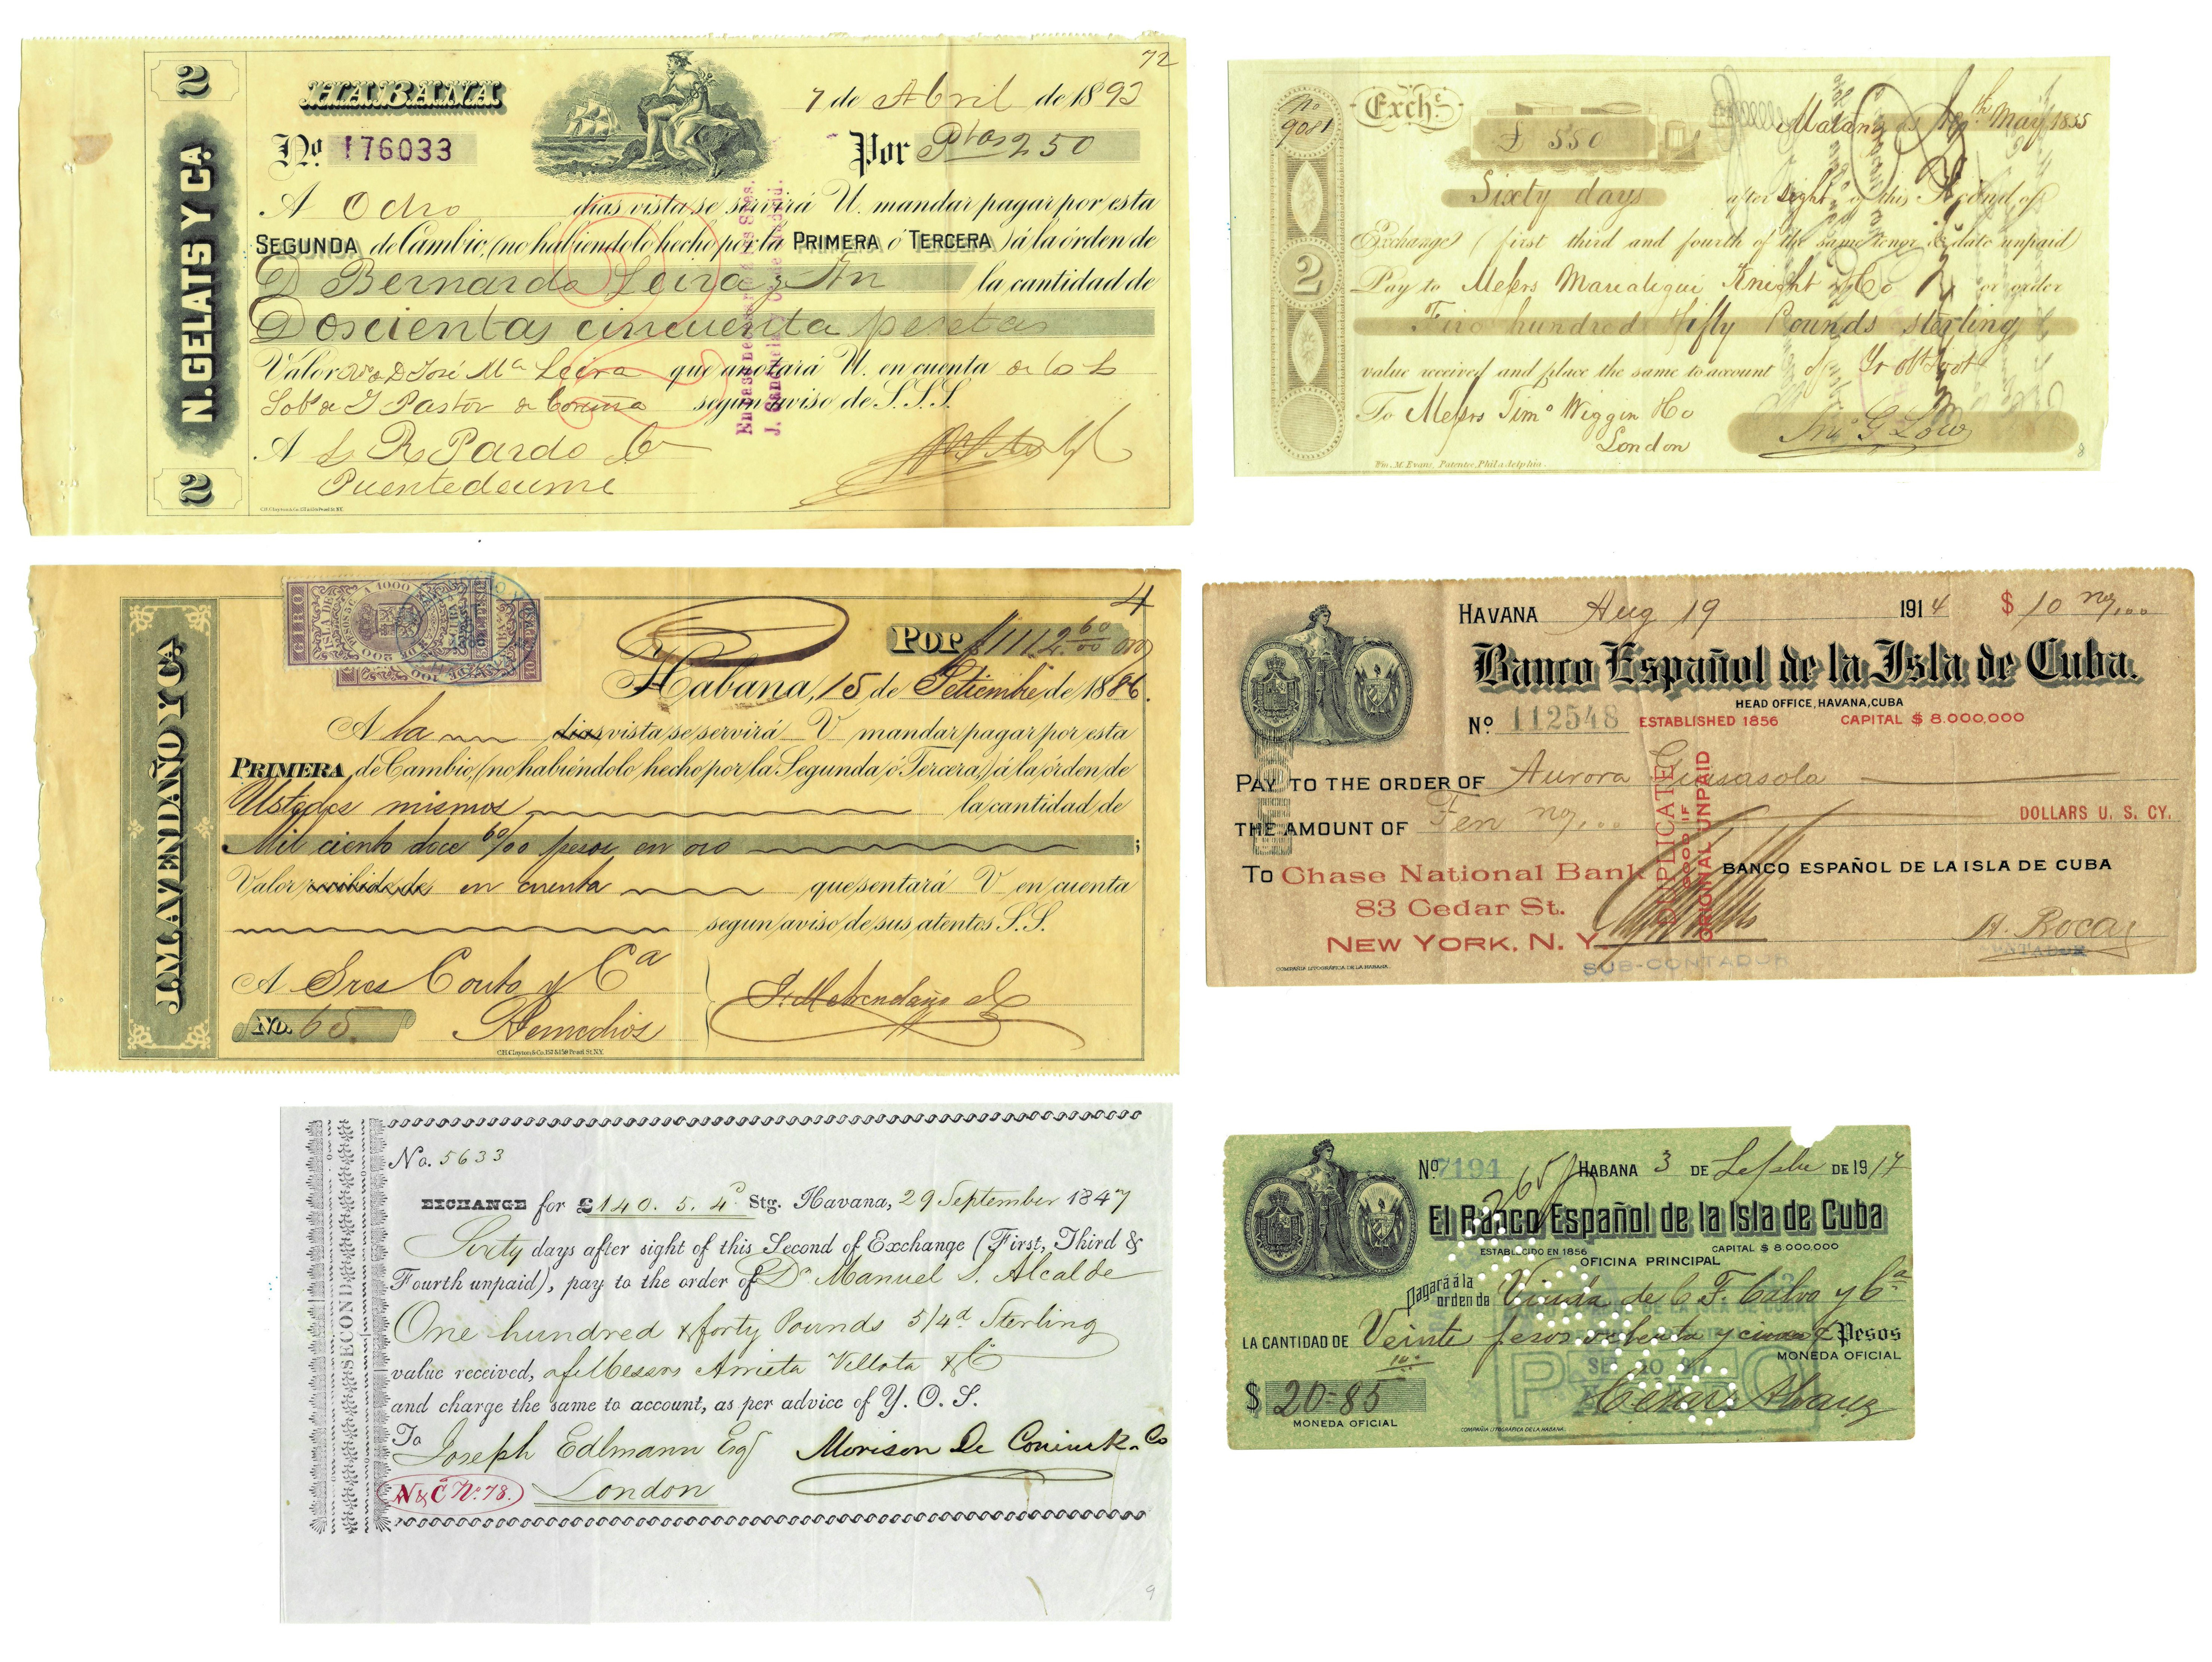 72
2
HABANA
7 de Abril de 1893
N. GELATS Y CA.
No. 176033
Por Ptas 250
A Ocho dias vista se servirá U. mandar pagar por esta
SEGUNDA de Cambio, (no habiendolo hecho por la PRIMERA ó TERCERA) á la órden de
D Bernardo Leira y Hn la cantidad de
Doscientas cincuenta pesetas
Valor D José Ma Leira que anotará U. en cuenta
Sobs de J Pastor de Coruña segun aviso de S.S.S.
A R. Pardo
Puentedeume
2
J.M. AVENDAÑO Y CA.
GIRO
ISLA DE CUBA
4
POR $1112 60/00 oro
Habana, 15 de Setiembre de 1886.
A la dias vista se servirá V mandar pagar por esta
PRIMERA de Cambio, (no habiéndolo hecho por la Segunda ó Tercera,) á la órden de
Ustedes mismos la cantidad de
Mil ciento doce 60/00 pesos en oro ;
Valor recibido de en cuenta que sentará V en cuenta
segun aviso de sus atentos S.S.
A Sres Couto y Ca
No. 65 Remedios
J. M. Avendaño
C.H. Clayton & Co. 157 & 159 Pearl St. N.Y.
SECOND
No. 5633
EXCHANGE for £140. 5. 4d Stg. Havana, 29 September 1847
Sixty days after sight of this Second of Exchange (First, Third &
Fourth unpaid), pay to the order of Dn Manuel S. Alcalde
One hundred & forty Pounds 5/4d Sterling
value received, of Messrs Arrieta Villota & Co
and charge the same to account, as per advice of Y. O. S.
To
Joseph Edlmann Esq Morison De Coninck & Co
N & C No. 78. London
9
No 9081
Exche.
£ 550
Matanzas May 1835
Sixty days after sight of this Second of
Exchange (first third and fourth of the same tenor & date unpaid)
2
Pay to Messrs Marialegui Knight & Co or order
Five hundred fifty Pounds sterling
value received and place the same to account of Yr obt Svt
To Messrs Timo Wiggin & Co
London
Jno G Low
Wm. M. Evans, Patentee, Philadelphia.
8
HAVANA Aug 19 1914 $ 10
Banco Español de la Isla de Cuba.
HEAD OFFICE, HAVANA, CUBA
No. 112548 ESTABLISHED 1856 CAPITAL $ 8.000,000
PAY TO THE ORDER OF Aurora Guisasola
THE AMOUNT OF Ten DOLLARS U. S. CY.
DUPLICATE
GOOD IF
ORIGINAL UNPAID
To Chase National Bank BANCO ESPAÑOL DE LA ISLA DE CUBA
83 Cedar St.
NEW YORK, N. Y.
A. Roca
SUB-CONTADOR
CONTADOR
COMPAÑIA LITOGRAFICA DE LA HABANA.
No. 7194 HABANA 3 DE Sepbre DE 1917
El Banco Español de la Isla de Cuba
ESTABLECIDO EN 1856 CAPITAL $ 8.000,000
OFICINA PRINCIPAL
Pagará á la orden de Viuda de C. F. Calvo y Ca
LA CANTIDAD DE Veinte pesos ochenta y cinco Pesos
MONEDA OFICIAL
$ 20-85
MONEDA OFICIAL
COMPAÑIA LITOGRAFICA DE LA HABANA.